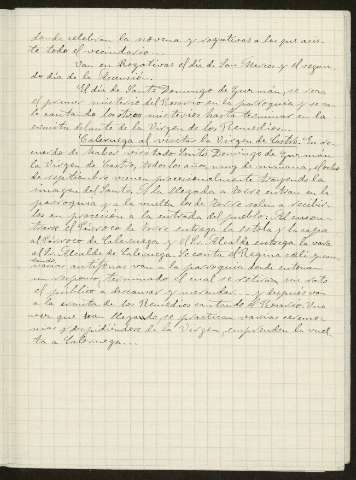 do de celebran la novena y rogativas a las que asis-
te todo el vecindario.
Van en Rogativas el día de San Marcos y el segun-
do día de la Ascensión.
El día de Santo Domingo de Guzmán, se reza
el primer misterio del Rosario en la parroquia y se va-
le cantando los otros misterios hasta terminar en la
ermita delante de la Virgen de los Remedios.
Caleruega al visitar la Virgen de Castro. En re-
cuerdo de haber visitado Santo Domingo de Guzmán
la Virgen de Castro, todos los años, muy de mañana, el ocho
de septiembre vienen procesionalmente trayendo la
imagen del Santo. A la llegada a Torre entran en la
parroquia y a la vuelta los de Torre salen a recibir-
los en procesión a la entrada del pueblo. Al encon-
trarse el Párroco de Torre entrega la estola y la capa
al Párroco de Caleruega y el Sr. Alcalde entrega la vara
al Sr. Alcalde de Caleruega. Se canta el Regina caeli y can-
tando antífonas van a la parroquia donde entonan
un responso, terminado el cual se retiran un rato
el público a descansar y merendar y después van
a la ermita de los Remedios cantando el Rosario. Una
vez que han llegado se practican varias ceremo-
nias y despidiéndose de la Virgen, emprenden la vuel-
ta a Caleruega.